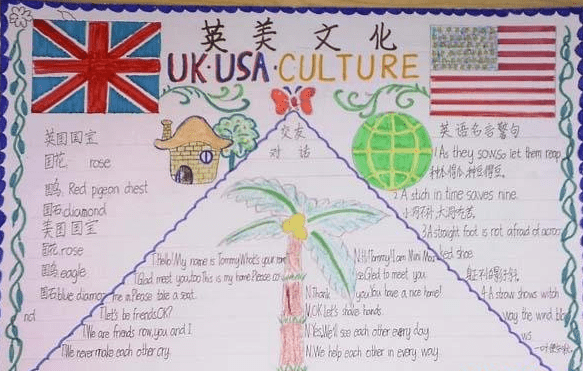 英美文化
UK·USA·CULTURE
英国国宝
国花 rose
国鸟 Red pigeon chest
国石 diamond
美国国宝
国花 rose
国鸟 eagle
国石 blue diamond
交友
对话
T.Hello! My name is Tommy. What's your name
T.Glad meet you, too. This is my home. Please
me in. Please take a seat.
T.Let's be friends, OK?
T.We are friends now, you and I
T.We never make each other cry.
N.Hi! Tommy! I am Mini
Glad to meet you.
N.Thank you. You have a nice home!
N.OK. Let's shake hands.
N.Yes. We'll see each other every day.
N.We help each other in every way.
英语名言警句
1 As they sow, so let them reap
2 A stich in time saves nine.
3 A straight foot is not afraid of
ked shoe.
4 A straw shows witch
way the wind
ws.